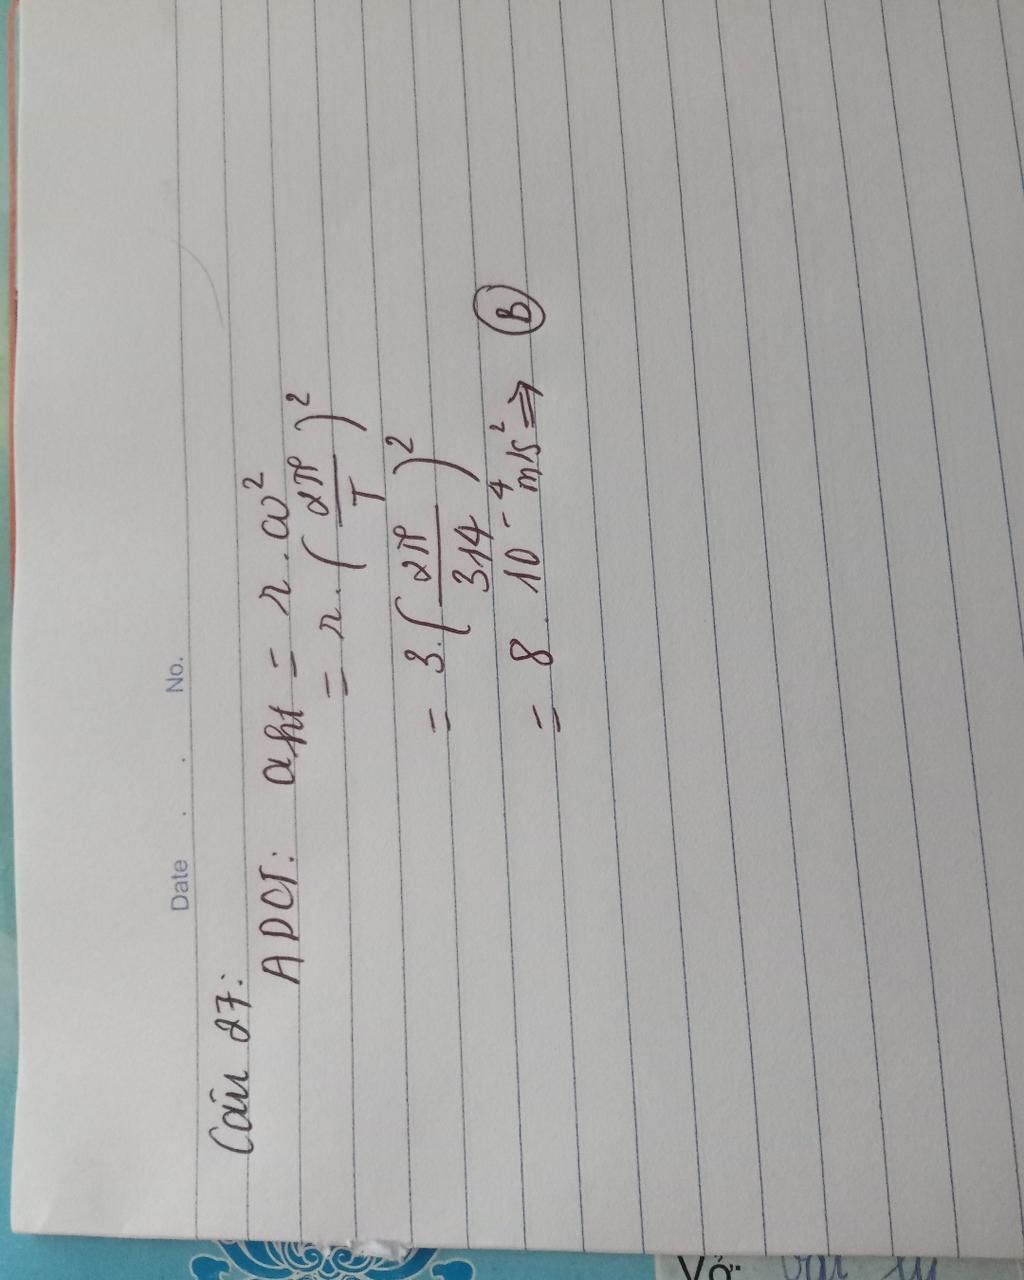 Date . . No.
Câu 27:
ADCT: aht = r . ω²
= r . (2π/T)²
= 3 . (2π/314)²
= 8 . 10⁻⁴ m/s² ⇒ B
Vở: